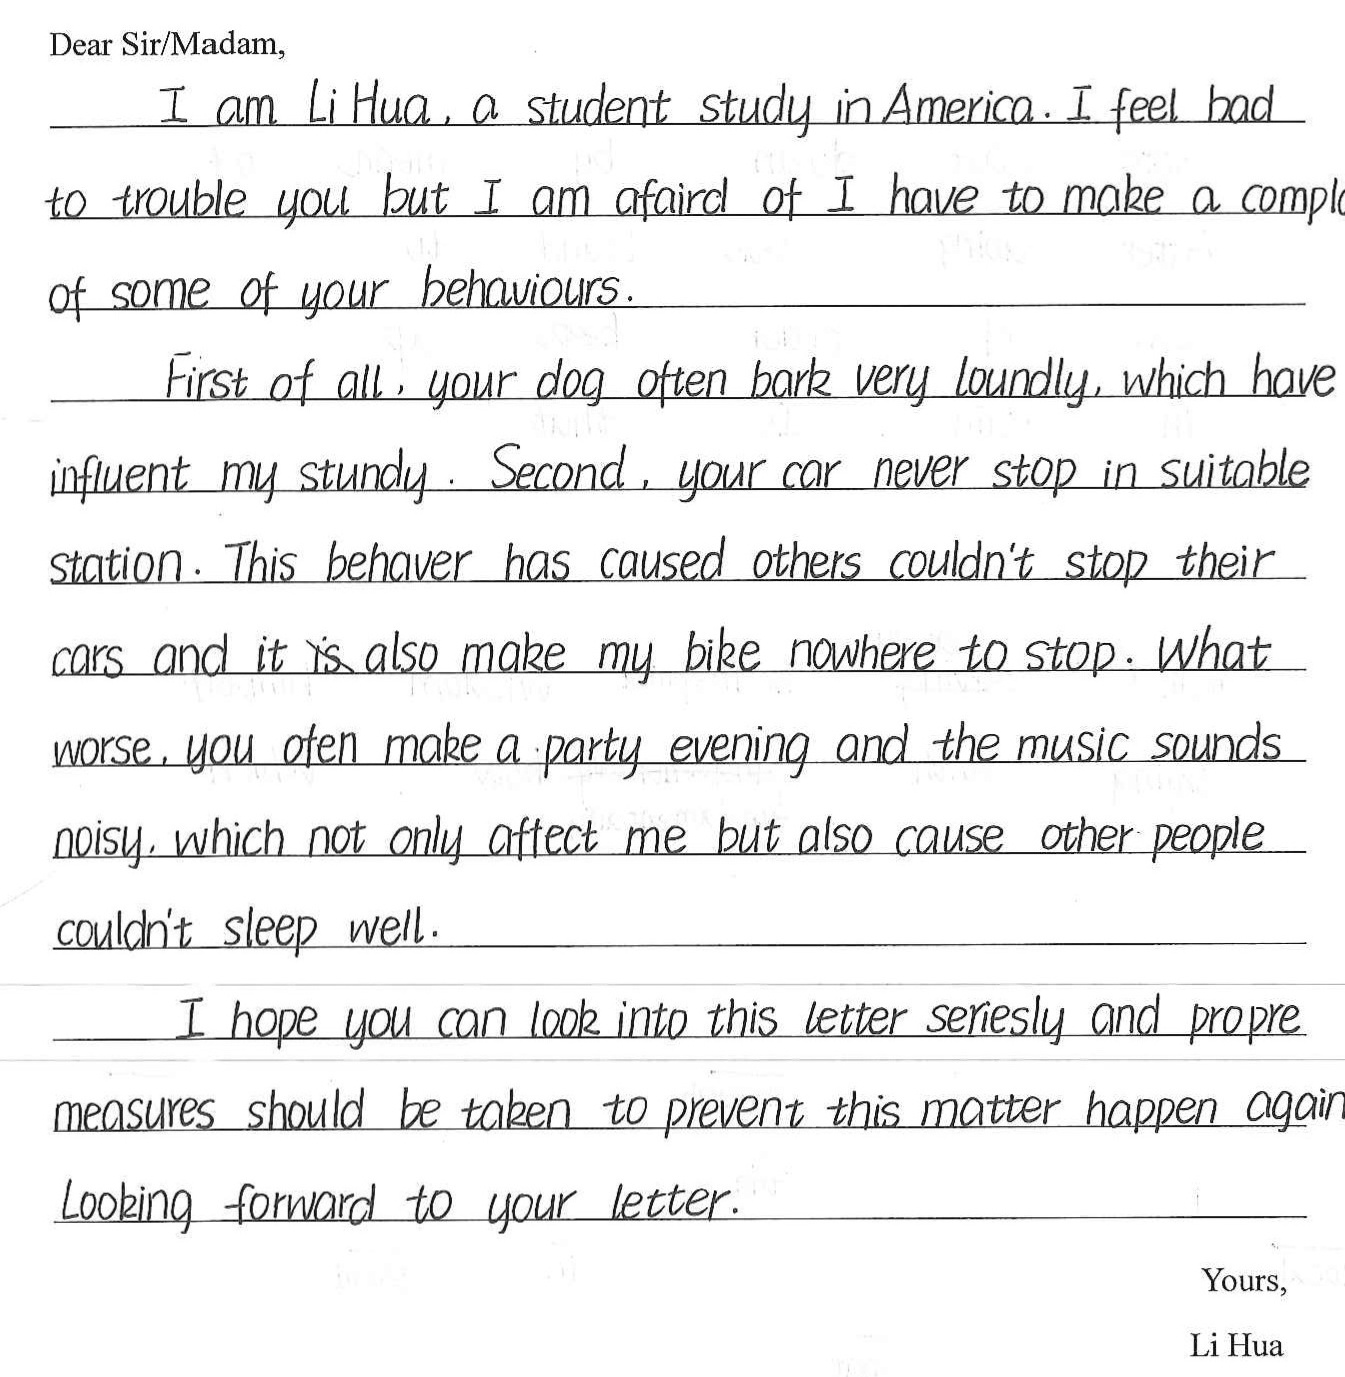 Dear Sir/Madam,
I am Li Hua, a student study in America. I feel bad
to trouble you but I am afaird of I have to make a
of some of your behaviours.
First of all, your dog often bark very loundly, which have
influent my stundy. Second, your car never stop in suitable
station. This behaver has caused others couldn't stop their
cars and it is also make my bike nowhere to stop. What
worse, you ofen make a party evening and the music sounds
noisy, which not only affect me but also cause other people
couldn't sleep well.
I hope you can look into this letter seriesly and propre
measures should be taken to prevent this matter happen again
Looking forward to your letter.
Yours,
Li Hua